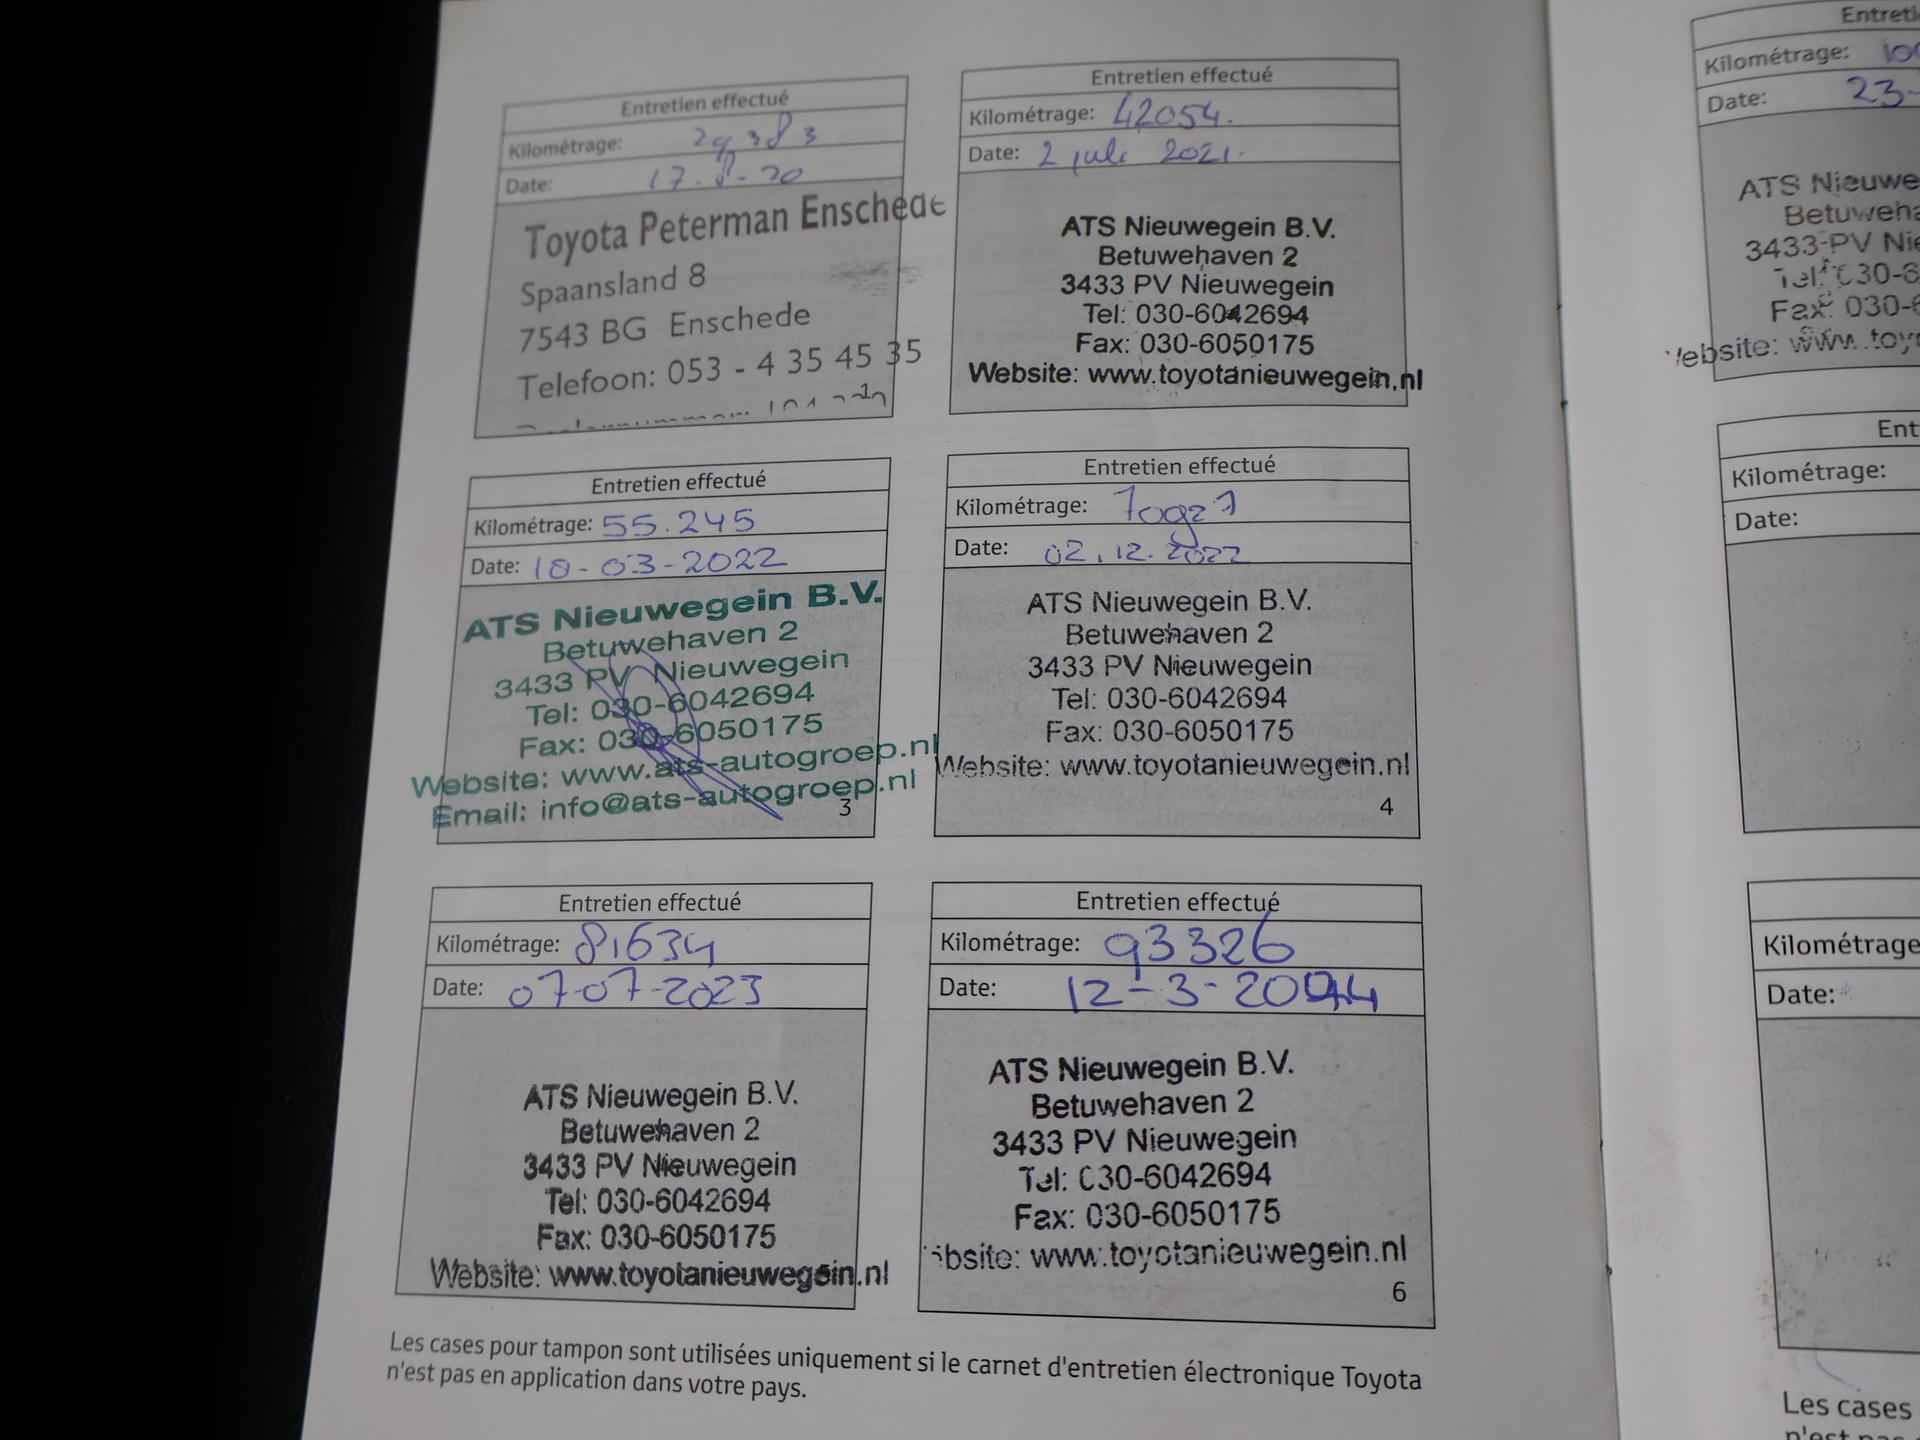 Entretien effectué
Kilométrage: 29383
Date: 17-8-20
Toyota Peterman Enschede
Spaansland 8
7543 BG Enschede
Telefoon: 053 - 4 35 45 35
Entretien effectué
Kilométrage: 42054.
Date: 2 juli 2021.
ATS Nieuwegein B.V.
Betuwehaven 2
3433 PV Nieuwegein
Tel: 030-6042694
Fax: 030-6050175
Website: www.toyotanieuwegein.nl
Entretien effectué
Kilométrage: 55.245
Date: 18-03-2022
ATS Nieuwegein B.V.
Betuwehaven 2
3433 PV Nieuwegein
Tel: 030-6042694
Fax: 030-6050175
Website: www.ats-autogroep.nl
Email: info@ats-autogroep.nl
3
Entretien effectué
Kilométrage:
Date: 02.12.2022
ATS Nieuwegein B.V.
Betuwehaven 2
3433 PV Nieuwegein
Tel: 030-6042694
Fax: 030-6050175
Website: www.toyotanieuwegein.nl
4
Entretien effectué
Kilométrage: 81634
Date: 07-07-2023
ATS Nieuwegein B.V.
Betuwehaven 2
3433 PV Nieuwegein
Tel: 030-6042694
Fax: 030-6050175
Website: www.toyotanieuwegein.nl
Entretien effectué
Kilométrage: 93326
Date: 12-3-
ATS Nieuwegein B.V.
Betuwehaven 2
3433 PV Nieuwegein
Tel: 030-6042694
Fax: 030-6050175
bsite: www.toyotanieuwegein.nl
6
Les cases pour tampon sont utilisées uniquement si le carnet d'entretien électronique Toyota
n'est pas en application dans votre pays.
Entreti
Kilométrage: 10
Date: 23-
ATS Nieuwe
Betuweha
3433 PV Nie
Tel: 030-6
Fax: 030-6
ebsite: www.toyo
Ent
Kilométrage:
Date:
Kilométrage
Date:
Les cases
n'est pas